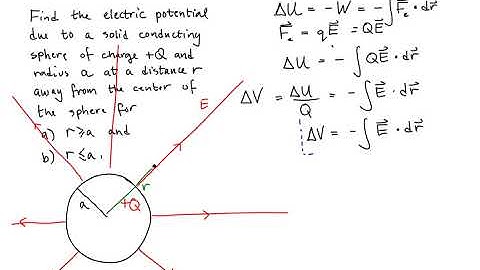 Find the electric potential
due to a solid conducting
sphere of charge +Q and
radius a at a distance r
away from the center of
the sphere for
a) r ≥ a and
b) r ≤ a.
E
r
a
+Q
ΔU = -W = -∫F⃗e • dr⃗
F⃗e = qE⃗ = QE⃗
ΔU = -∫QE⃗ • dr⃗
ΔV = ΔU/Q = -∫E⃗ • dr⃗
ΔV = -∫E⃗ • dr⃗